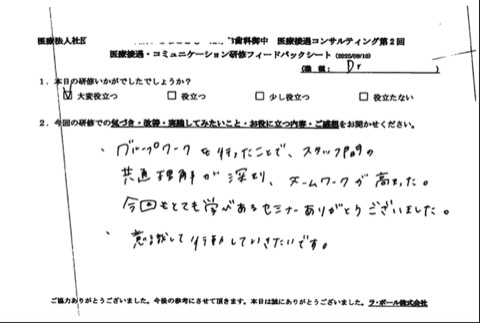 医療法人社団 歯科御中　医療接遇コンサルティング第2回
医療接遇・コミュニケーション研修フィードバックシート（2025/09/10）
（職種：Dr　）
1．本日の研修いかがでしたでしょうか？
☑大変役立つ　□役立つ　□少し役立つ　□役立たない
2．今回の研修での気づき・改善・実践してみたいこと・お役に立つ内容・ご感想をお聞かせください。
・グループワークを行ったことで、スタッフ間の
共通理解が深り、チームワークが高まった。
今回もとても学びがあるセミナーありがとうございました。
・意識して行動していきたいです。
ご協力ありがとうございました。今後の参考にさせて頂きます。本日は誠にありがとうございました。ラ・ポール株式会社